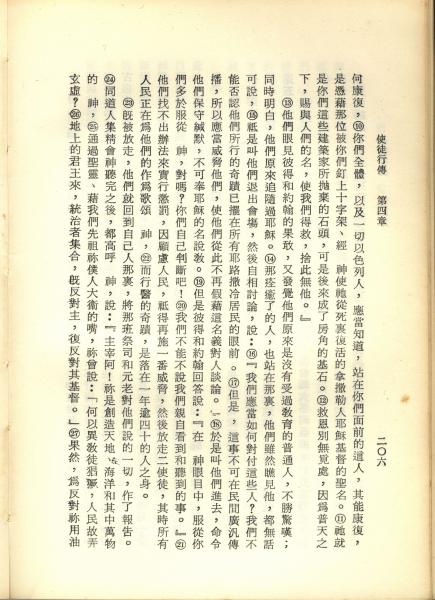 使徒行傳　第四章
二〇六
何康復，⑩你們全體，以及一切以色列人，應當知道，站在你們面前的這人，其能康復，
是憑藉那位被你們釘上十字架、經　神使祂從死裏復活的拿撒勒人耶穌基督的聖名。⑪祂就
是你們這些建築家所拋棄的石頭，可是後來成了房角的基石。⑫救恩別無覓處，因爲普天之
下，賜與人們的名，使我們得救，捨此無他。』
⑬他們眼見彼得和約翰的果敢，又發覺他們原來是沒有受過教育的普通人，不勝驚嘆；
同時明白，他們原來追隨過耶穌。⑭那痊癒了的人，也站在那裏，他們雖然瞧見他，都無話
可說，⑮祇是叫他們退出會場，然後自相討論，說：⑯『我們應當如何對付這些人？我們不
能否認他們所行的奇蹟已擺在所有耶路撒冷居民的眼前。⑰但是，這事不可在民間廣汎傳
播，所以應當威脅他們，使他們從此不再假藉這名義對人談論。』⑱於是叫他們進去，命令
他們保守緘默，不可奉耶穌的名說教。⑲但是彼得和約翰回答說：『在　神眼目中，服從你
們多於服從　神，對嗎？你們自己判斷吧！⑳我們不能不說我們親自看到和聽到的事。』㉑
他們找不出辦法來實行懲罰，因顧慮人民，祇得再施一番威脅，然後放走二使徒，其時所有
人民正在爲他們的作爲歌頌　神，㉒而行醫的奇蹟，是落在一年逾四十的人之身。
㉓旣被放走，他們就回到自己人那裏，將那班祭司和元老對他們說的一切，作了報告。
㉔同道人集精會神聽完之後，都高呼　神，說：『主宰阿！祢是創造天地、海洋和其中萬物
的　神，㉕通過聖靈、藉我們先祖祢僕人大衛的嘴，祢曾說：「何以異教徒猖獗，人民故弄
玄虛？㉖地上的君王來，統治者集合，旣反對主，復反對其基督。」㉗果然，爲反對祢用油